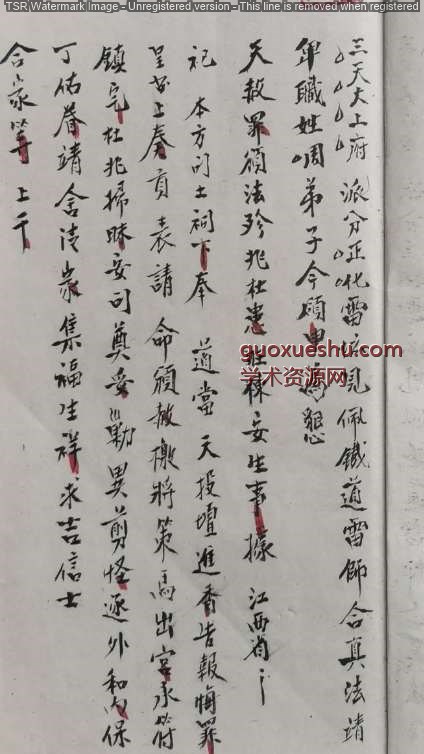 TSR Watermark Image - Unregistered version - This line is removed when registered
三天大上府 派分正化雷 佩鐵道雷師合真法靖
弟子今願 懇
天赦罪頒法 兆杜患 妥生事據 江西省
祀 本方 土祠下奉 道當 天投壇進香告報悔罪
呈 上奏貢表請 命頒赦檄將策馬出宮承符
鎮宅杜兆掃 妥司奠 勦異剪怪逐外和內保
丁佑眷靖舍 集福生祥求吉信士
合家等 上干
guoxueshu.com
学术资源网